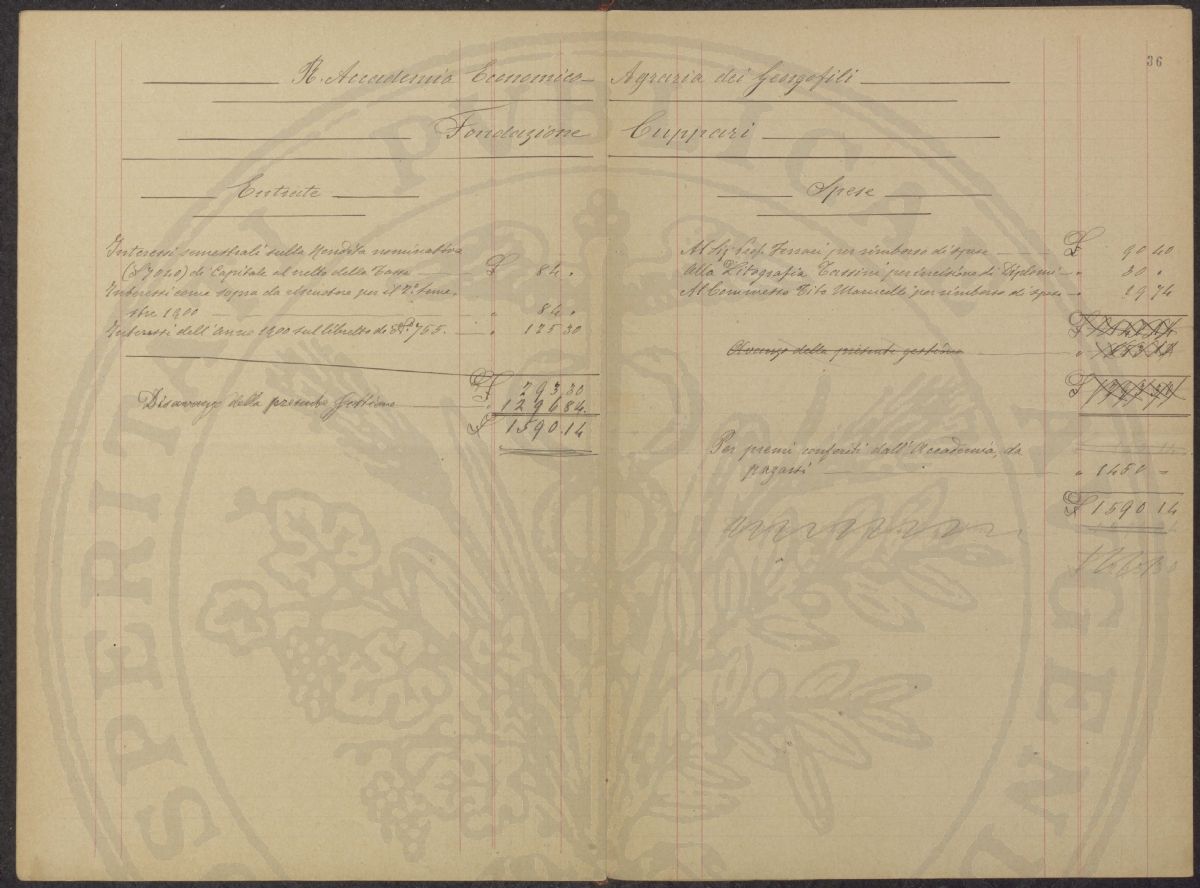 36
R. Accademia Economico Agraria dei Georgofili
Fondazione Cuppari
Entrate
Interessi semestrali sulla Rendita nominativa
di Capitale al netto della Tassa £ 84 "
Interessi come sopra da riscuotere per il 2º Seme-
stre 1900 " 84 "
Interessi dell'Anno 1900 sul libretto di Nº 755 " 125 30
£ 293 30
Disavanzo della presente Gestione " 1296 84
£ 1590.14
Spese
Al Sig. Ferrari per rimborso di spese £ 90 40
Alla Litografia Tassini per di Diplomi " 30 "
Al Commesso Tito Marucelli per rimborso di spese " 19 74
Avanzo della presente gestione
Per premi conferiti dall'Accademia, da
pagarsi " 1450 =
£ 1590 14
PVBLICAE
PROSPERITATI
AVGENDAE